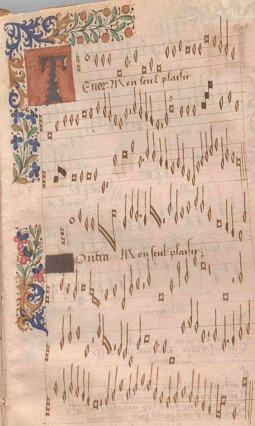 Tenor Mon seul plaisir
Contra Mon seul plaisir